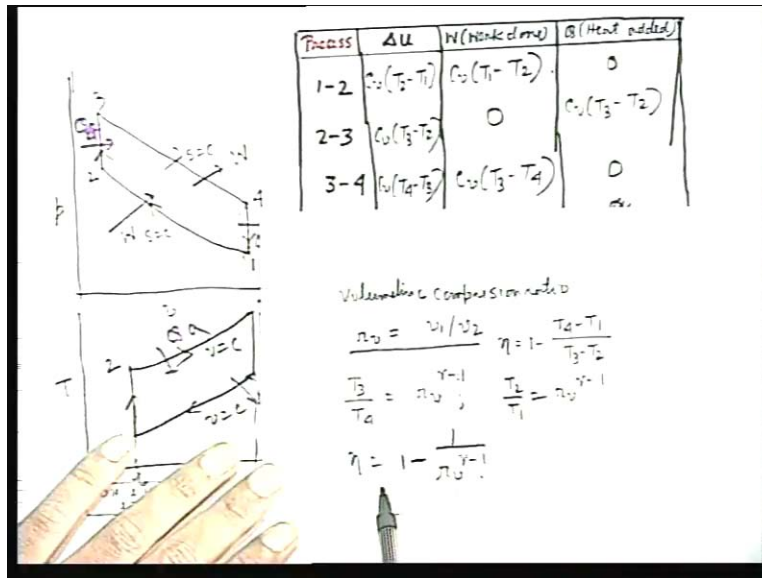 Process ΔU W (Work done) Q (Heat added)
1-2 Cv(T2-T1) Cv(T1-T2) 0
2-3 Cv(T3-T2) 0 Cv(T3-T2)
3-4 Cv(T4-T3) Cv(T3-T4) 0
3
Q
2
s=c
W
4
p
W s=c
1
v
Q
v=c
2
T
v=c
Volumetric compression ratio
rv = v1/v2 η = 1 - (T4-T1)/(T3-T2)
T3/T4 = rv^γ-1; T2/T1 = rv^γ-1
η = 1 - 1/rv^γ-1